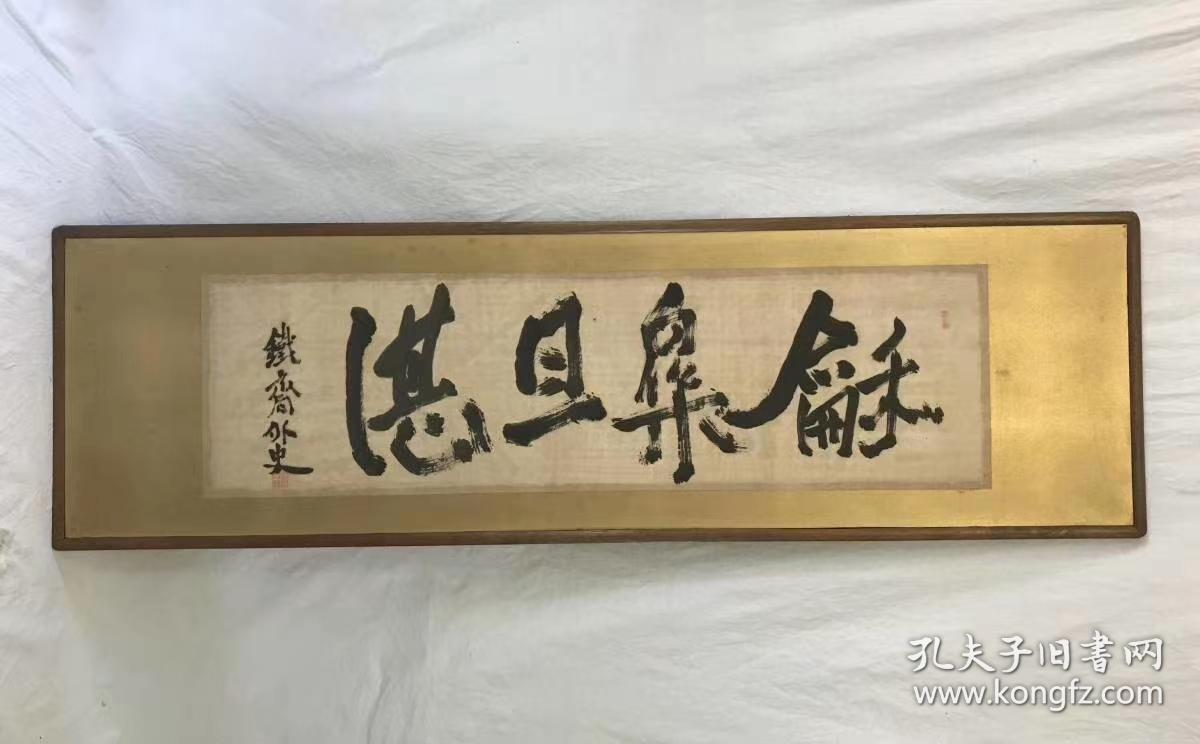 龢樂且湛
鐵齋外史
孔夫子旧書网
www.kongfz.com